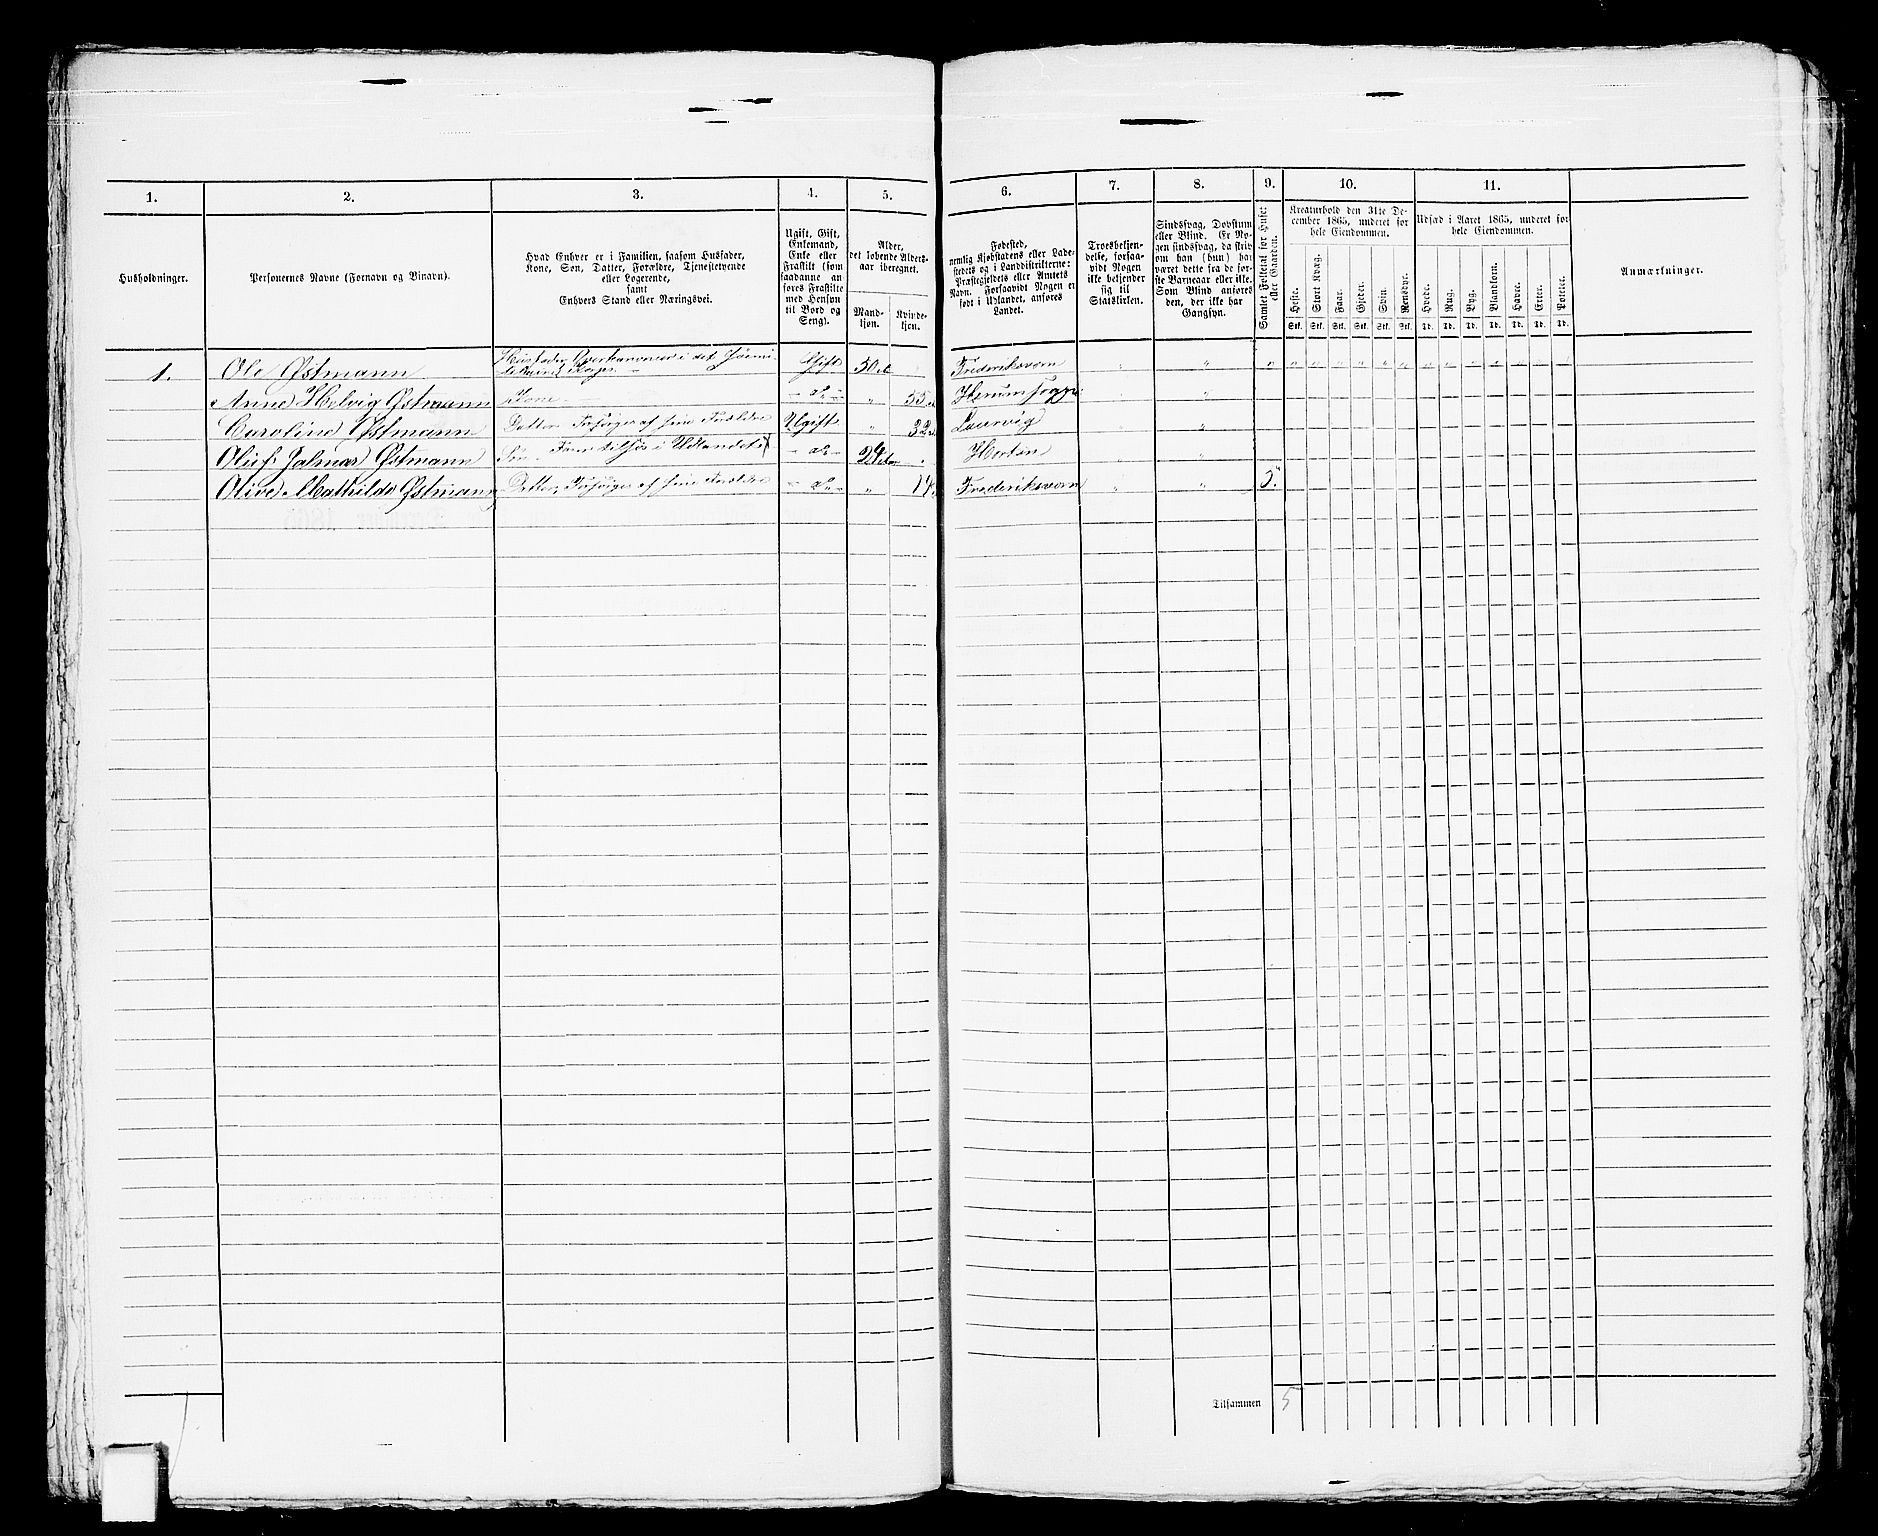 1. 2. 3. 4. 5. 6. 7. 8. 9. 10. 11.
Husholdninger.
Personernes Navne (Fornavn og Binavn).
Hvad Enhver er i Familien, saasom Husfader,
Kone, Søn, Datter, Forældre, Tjenestetyende
eller Logerende,
samt
Enhvers Stand eller Næringsvei.
Ugift, Gift,
Enkemand,
Enke eller
Fraskilt (som
saadanne an-
føres Fraskilte
med Hensyn
til Bord og
Seng).
Alder,
det løbende Alders-
aar iberegnet.
Mand-
kjøn.
Kvinde-
kjøn.
Fødested,
nemlig Kjøbstadens eller Lade-
stedets og i Landdistrikterne:
Præstegjeldets eller Amtets
Navn. Forsaavidt Nogen er
født i Udlandet, anføres
Landet.
Troesbekjen-
delse, forsaa-
vidt Nogen
ikke bekjender
sig til
Statskirken.
Sindssvag, Døvstum
eller Blind. Er No-
gen sindssvag, da skriv
om han (hun) har
været dette fra de før-
ste Barneaar eller ikke.
Som Blind anføres
den, der ikke har
Gangsyn.
Samlet Folketal for Huset
eller Gaarden.
Kreaturhold den 31te De-
cember 1865, underet for
hele Eiendommen.
Heste. Stort Kvæg. Faar. Gjeder. Svin. Rensdyr.
Stk. Stk. Stk. Stk. Stk. Stk.
Udsæd i Aaret 1865, underet for
hele Eiendommen.
Hvede. Rug. Byg. Blandkorn. Havre. Erter. Poteter.
Td. Td. Td. Td. Td. Td. Td.
Anmærkninger.
1. Ole Østmann Gift 50 Frederiksværn
Anne Helvig Østmann Kone 53
Caroline Østmann Datter Forsørges af sine Forældre Ugift 32 Laurvig
Oluf Jalmar Østmann Søn i Udlandet do 24 Horten
Olive Mathilde Østmann Datter Forsørges af sine Forældre do 14 Frederiksværn 5.
Tilsammen 5